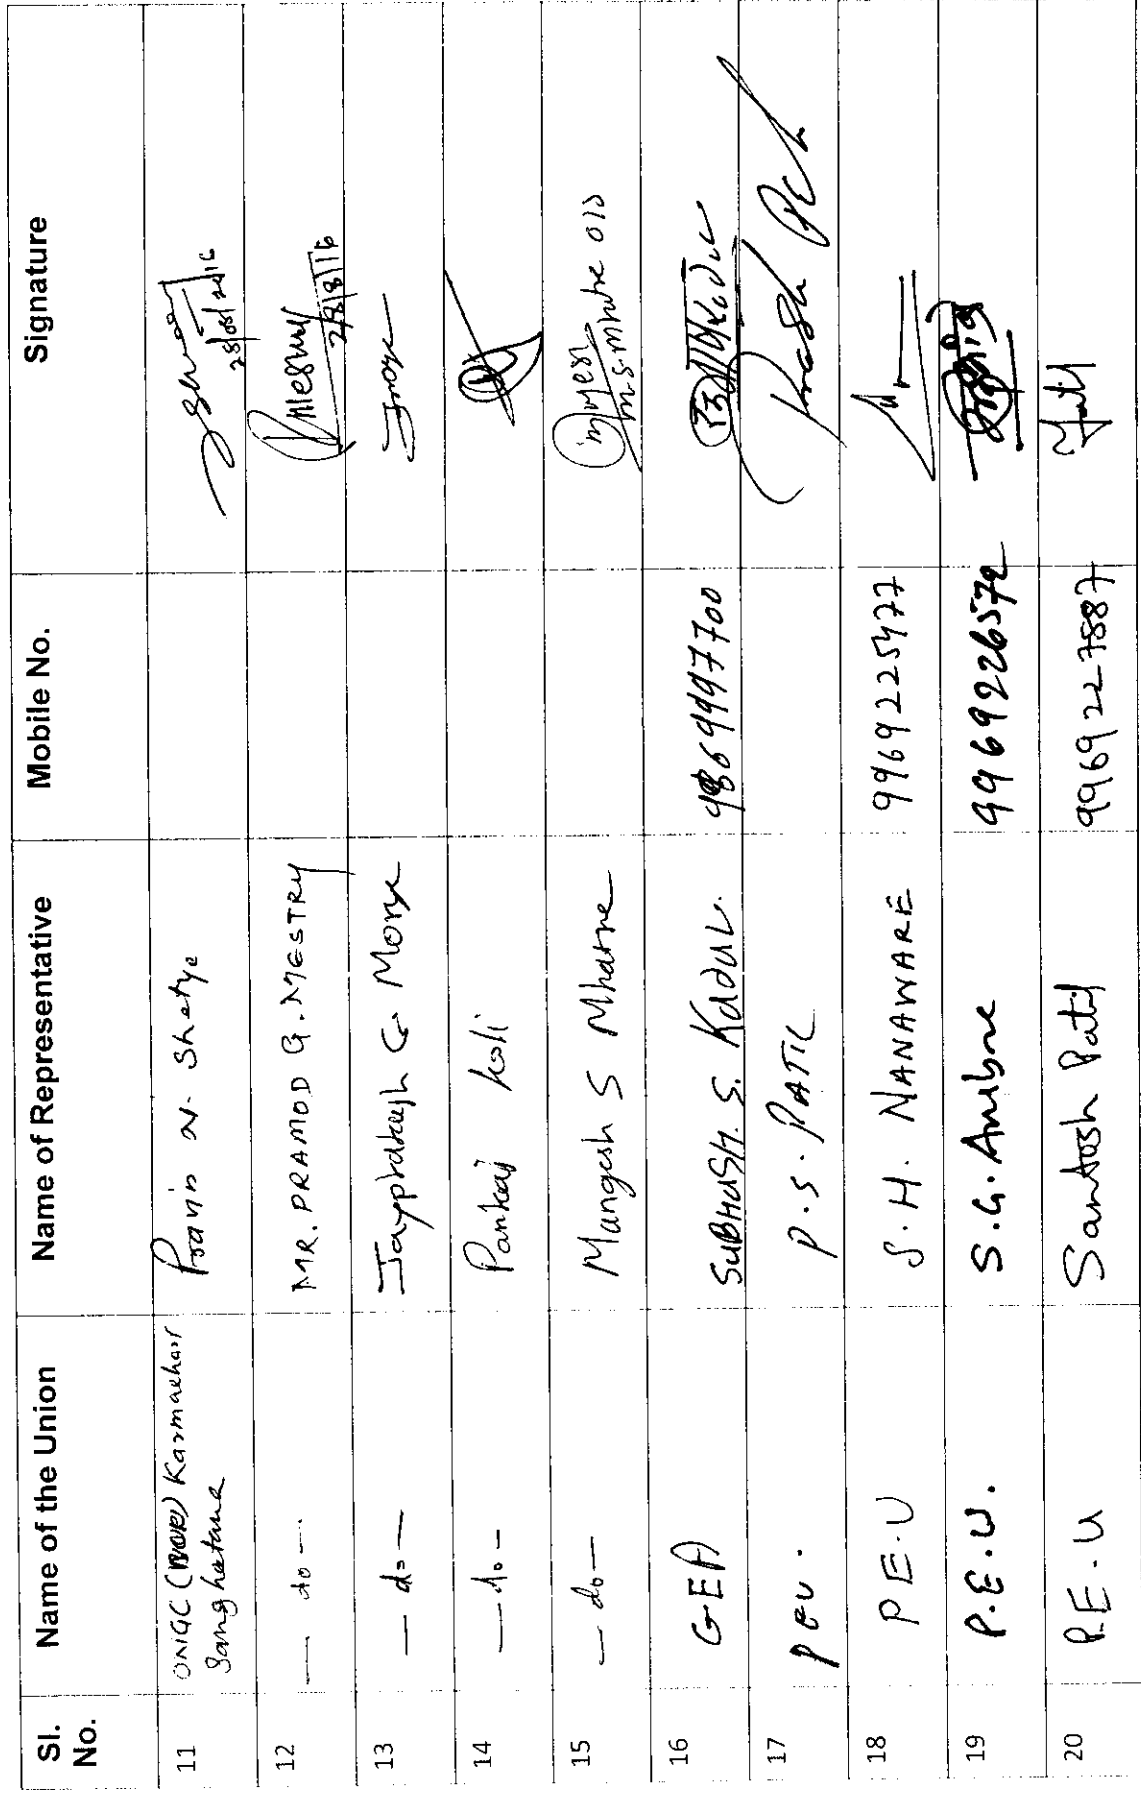 Sl. No. Name of the Union Name of Representative Mobile No. Signature
11 ONGC (BOP) Karmachari Sanghatana Pravin N. Shetye 28/08/2016
12 — do — MR. PRAMOD G. MESTRY 2/8/8/16
13 — do — Jayprakash G Morye
14 — do — Pankaj Koli
15 — do — Mangesh S Mhatre m.s.mhatre 015
16 GEA SUBHASH. S. Kadu 9869997700
17 PEU. P.S. PATIL
18 PE.U S.H. NANAWARE 9969225477
19 P.E.U. S.G. Ambre 9969226572
20 P.E.U Santosh Patil 9969227887